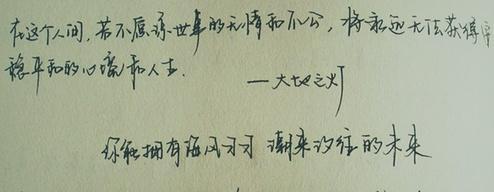 在这个人间,若不原谅世事的无情和不公,将永远无法获得
稳平和的心境和人生.
——大地之灯
你能拥有海风习习 潮来汐往的未来